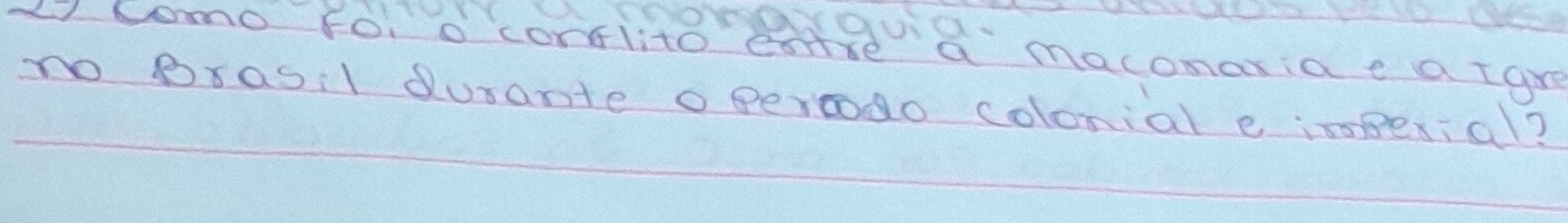 2) Como foi o conflito entre a maçonaria e a Igre
no Brasil durante o periodo colonial e imperial?